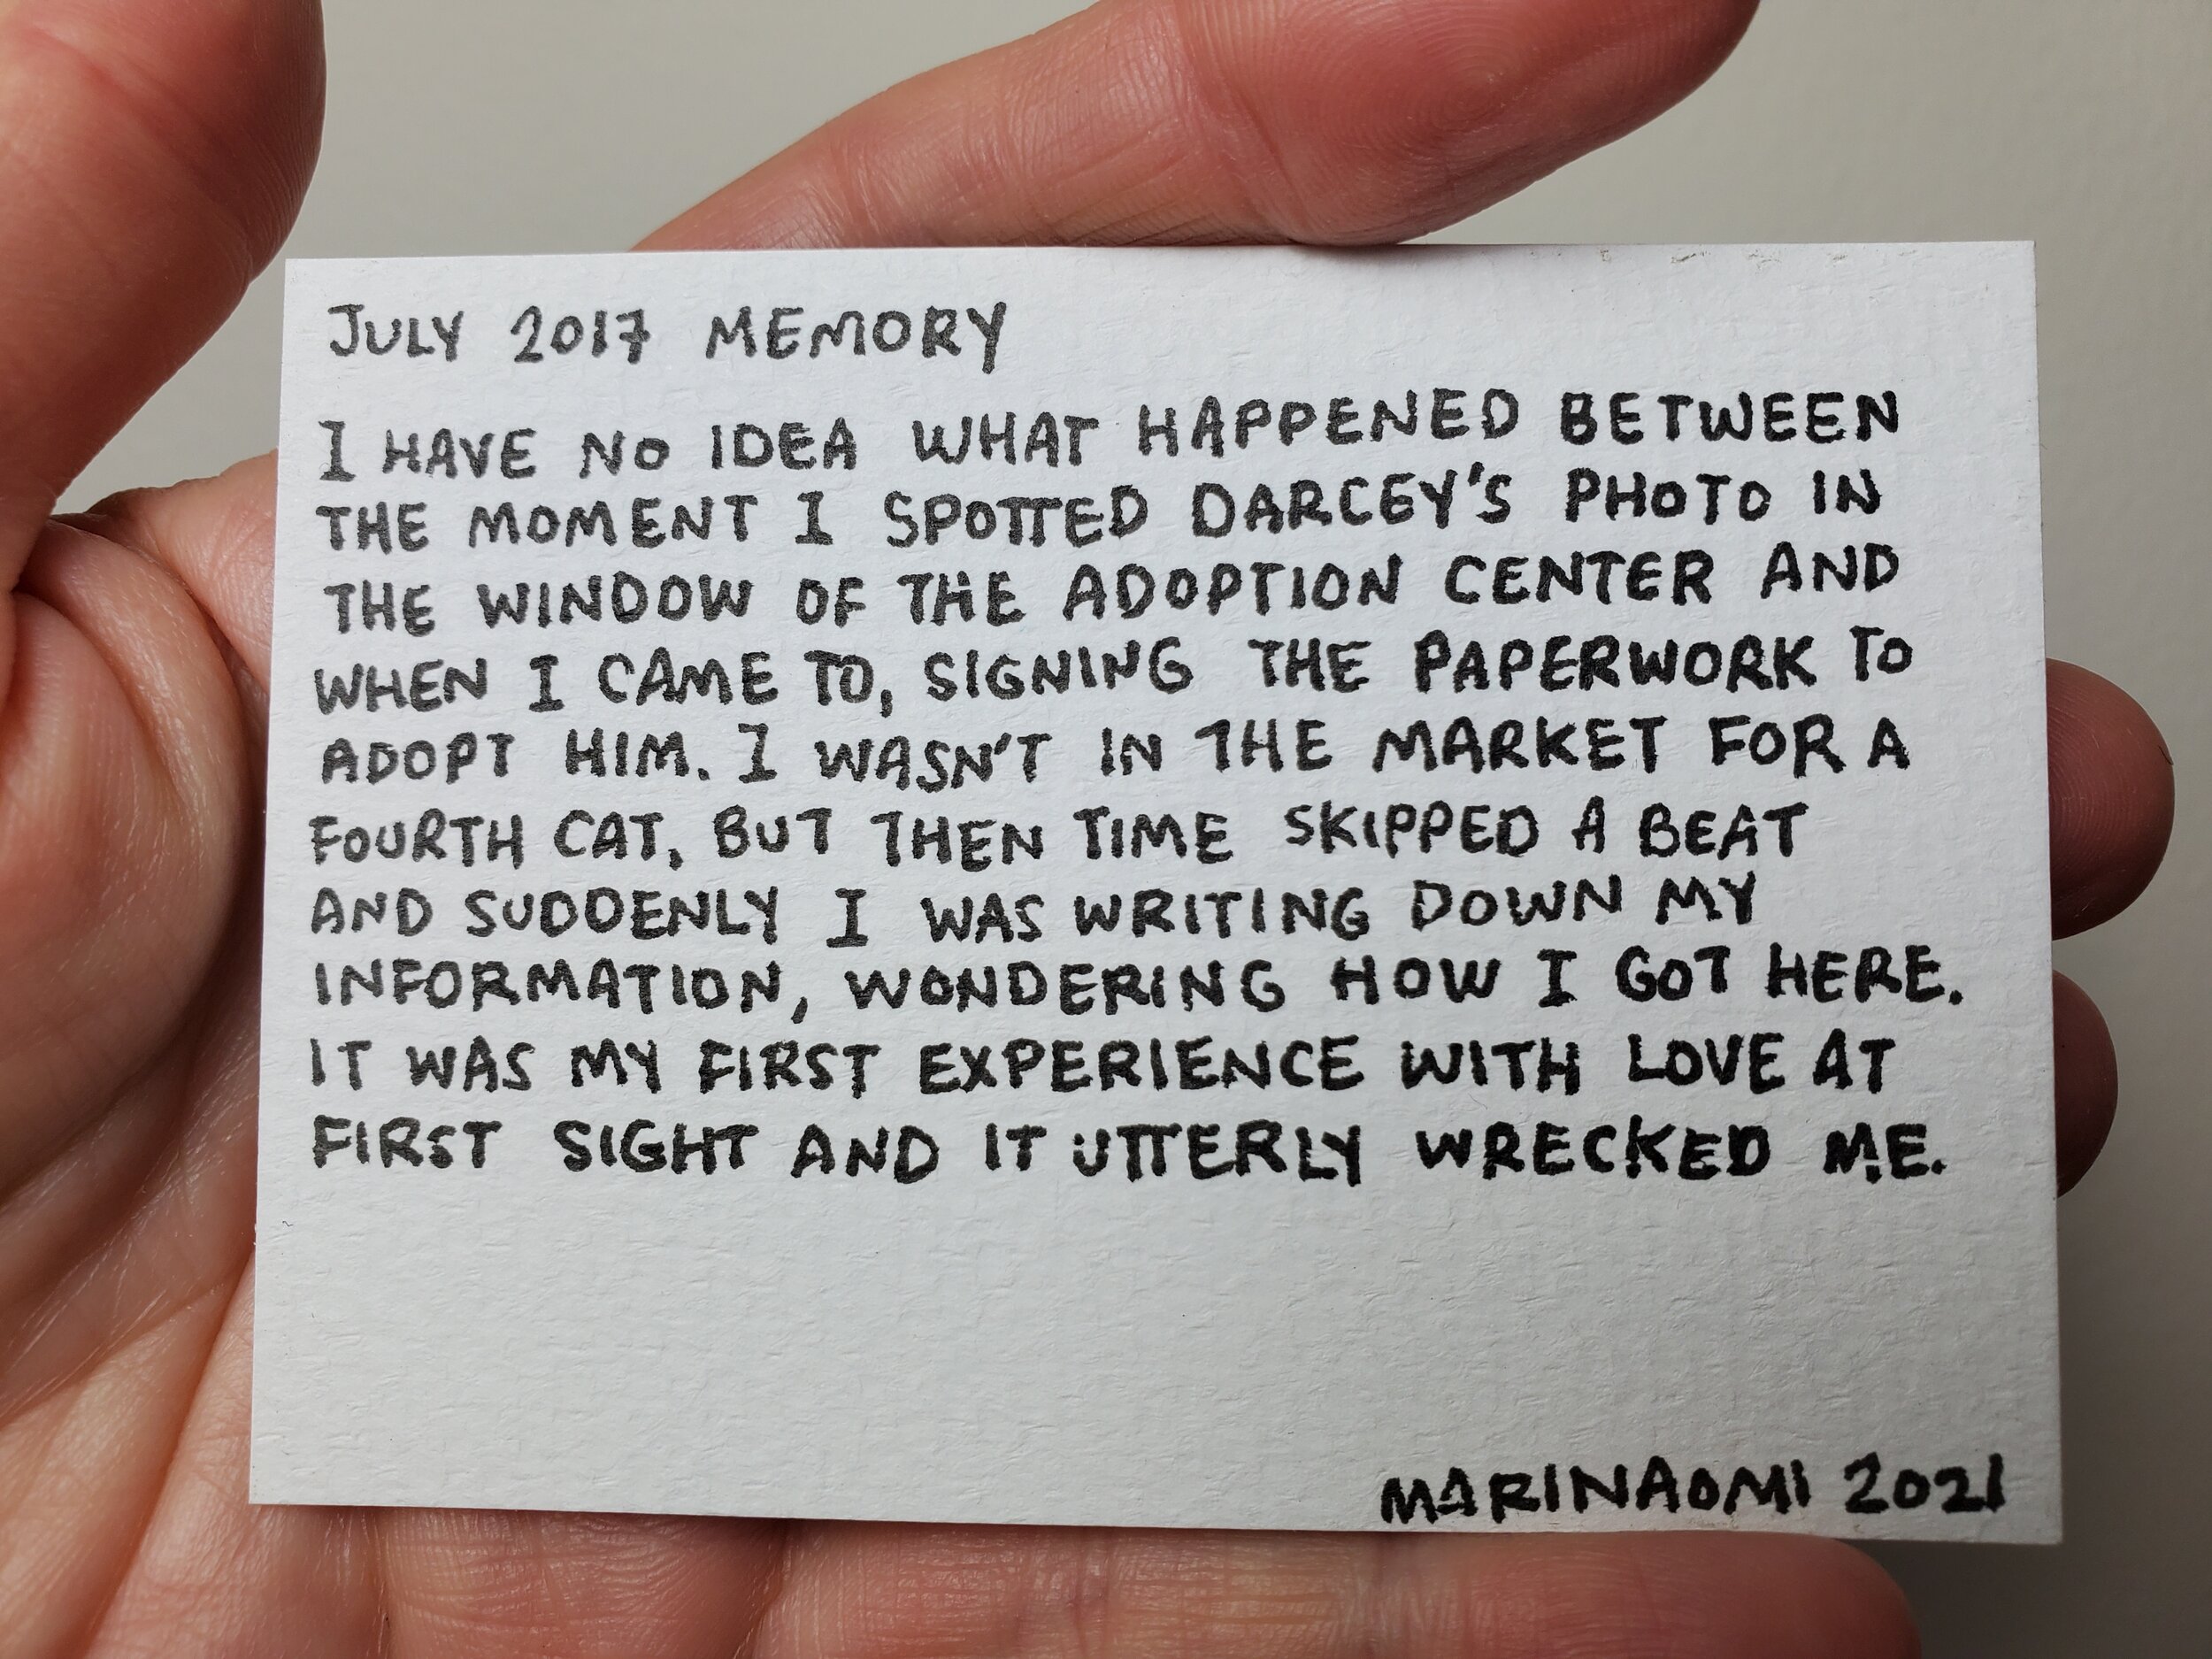 JULY 2017 MEMORY
I HAVE NO IDEA WHAT HAPPENED BETWEEN
THE MOMENT I SPOTTED DARCEY'S PHOTO IN
THE WINDOW OF THE ADOPTION CENTER AND
WHEN I CAME TO, SIGNING THE PAPERWORK TO
ADOPT HIM. I WASN'T IN THE MARKET FOR A
FOURTH CAT, BUT THEN TIME SKIPPED A BEAT
AND SUDDENLY I WAS WRITING DOWN MY
INFORMATION, WONDERING HOW I GOT HERE.
IT WAS MY FIRST EXPERIENCE WITH LOVE AT
FIRST SIGHT AND IT UTTERLY WRECKED ME.
MARINAOMI 2021